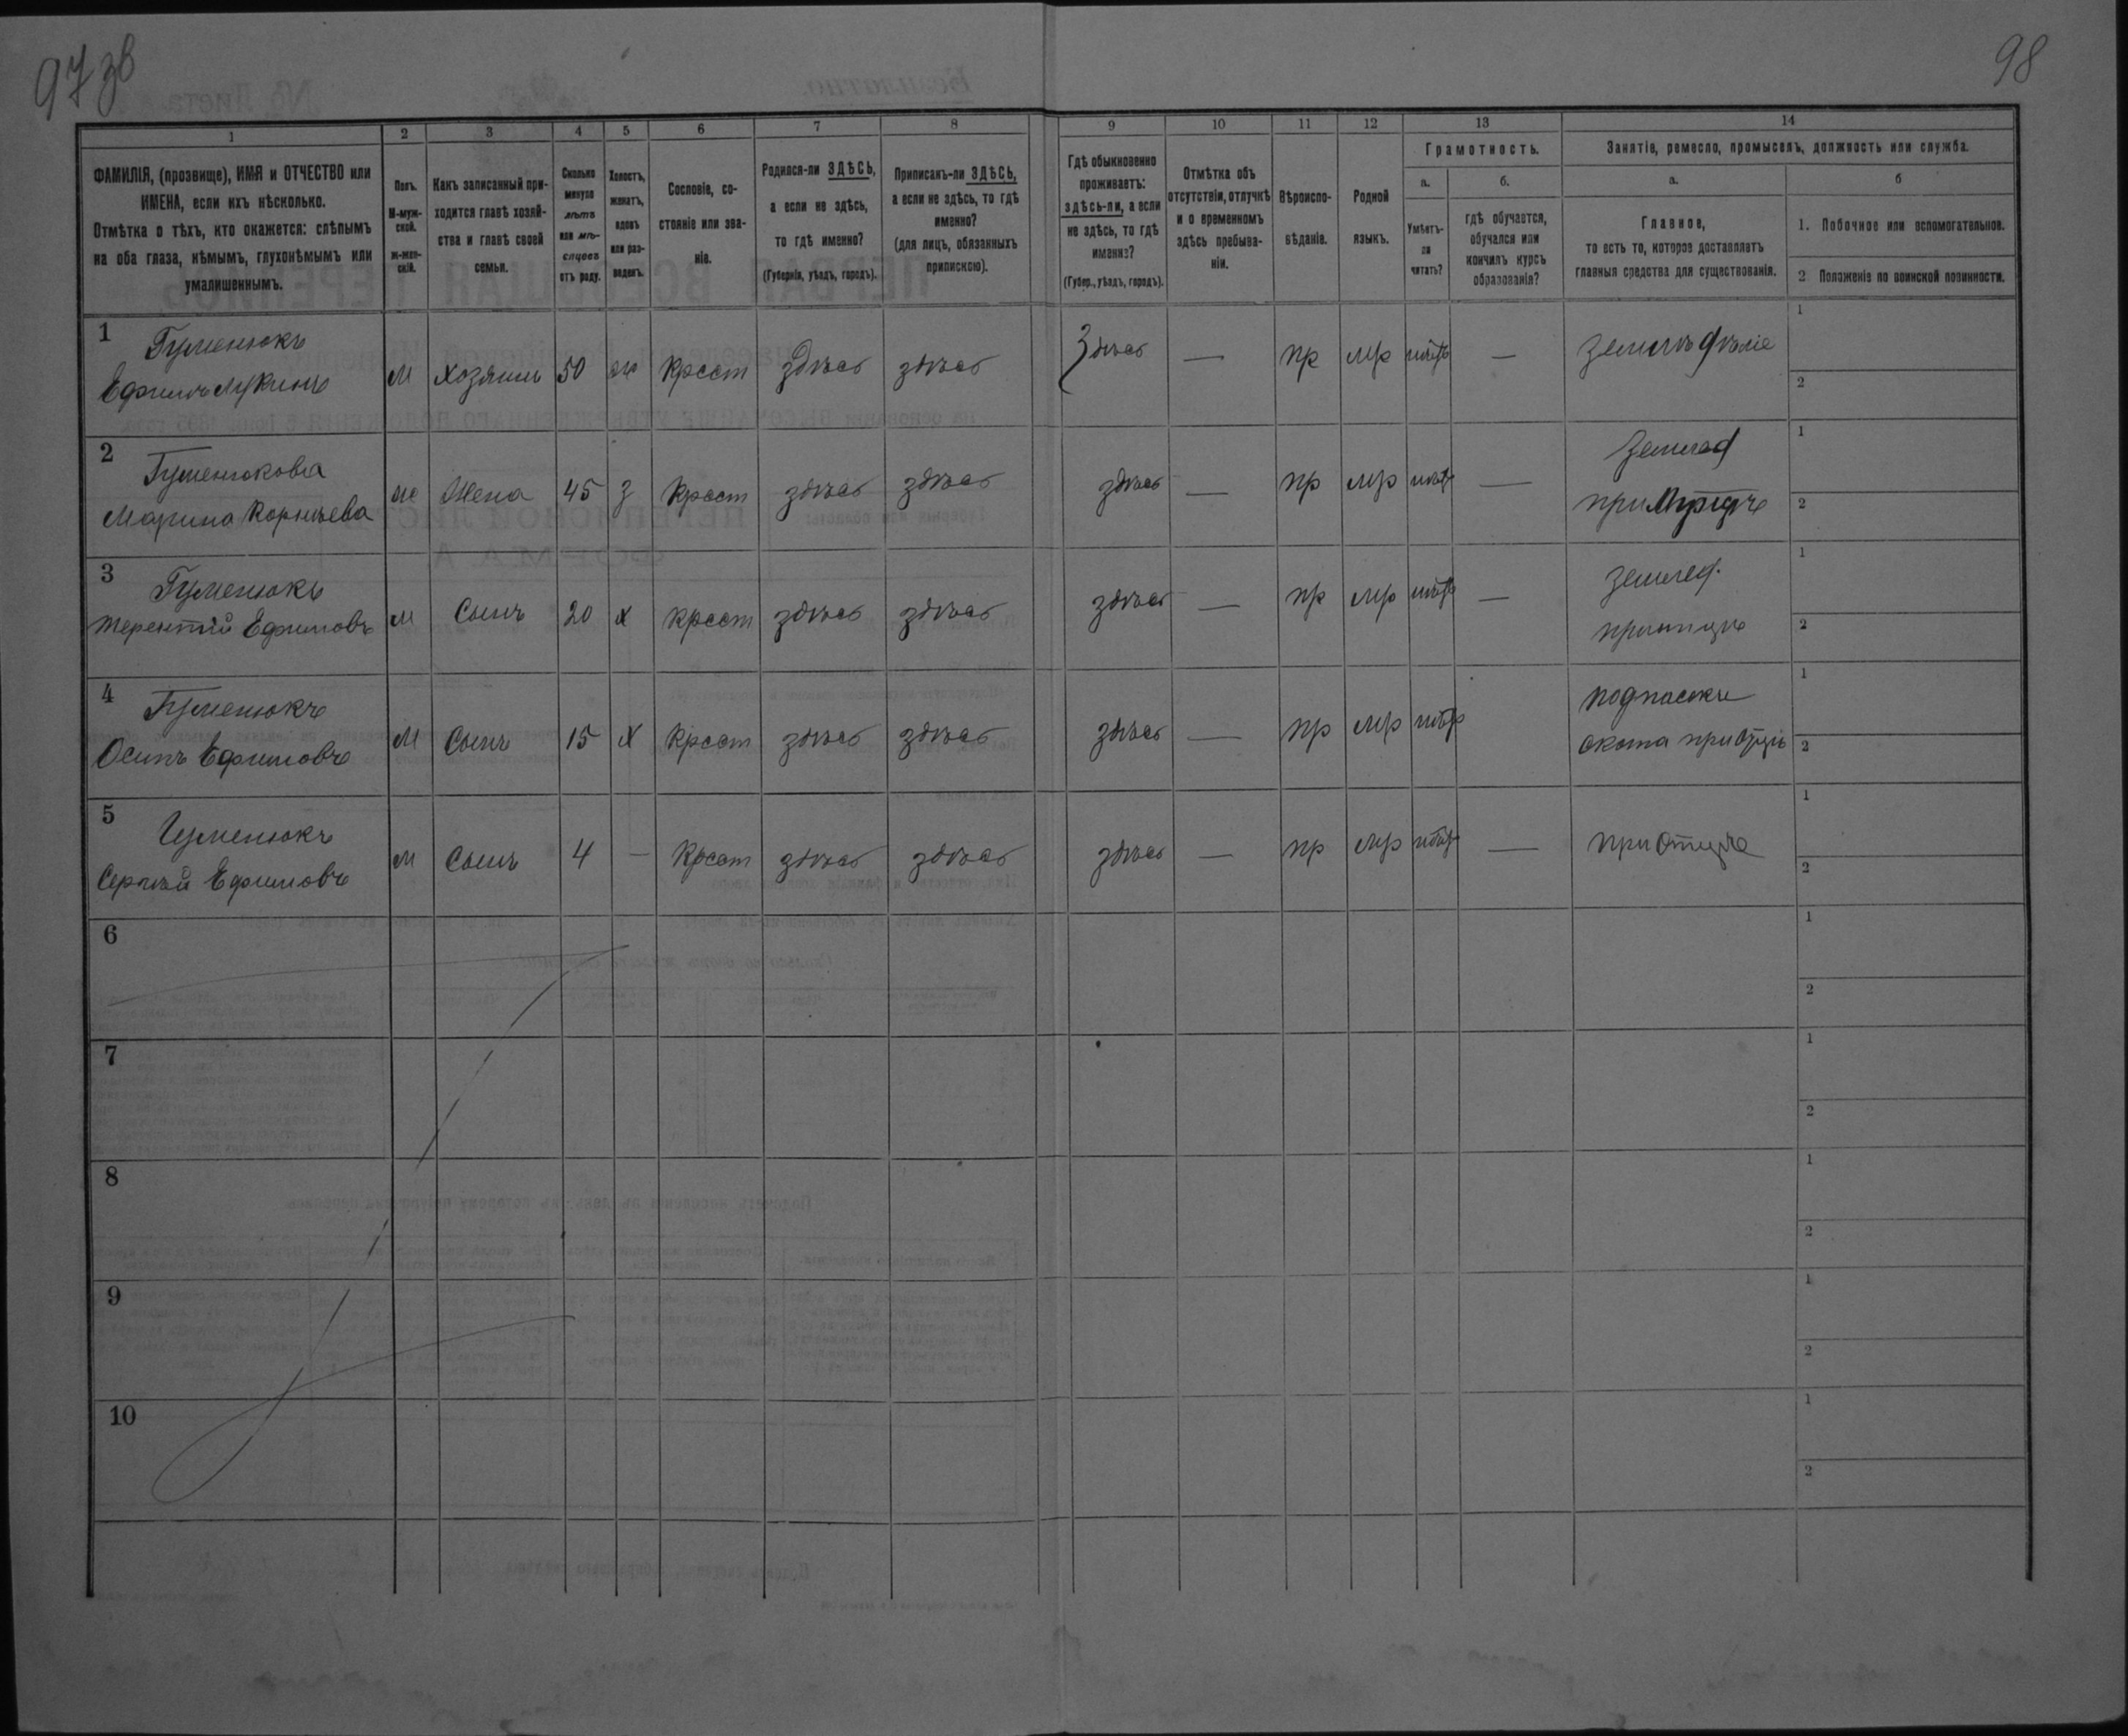 97 зв
98
1
2
3
4
5
6
7
8
9
10
11
12
13
14
ФАМИЛІЯ, (прозвище), ИМЯ и ОТЧЕСТВО или
ИМЕНА, если ихъ нѣсколько.
Отмѣтка о тѣхъ, кто окажется: слѣпымъ
на оба глаза, нѣмымъ, глухонѣмымъ или
умалишеннымъ.
Полъ.
М-муж-
ской.
ж-жен-
скій.
Какъ записанный при-
ходится главѣ хозяй-
ства и главѣ своей
семьи.
Сколько
минуло
лѣтъ
или мѣ-
сяцевъ
отъ роду.
Холостъ,
женатъ,
вдовъ
или раз-
веденъ.
Сословіе, со-
стояніе или зва-
ніе.
Родился-ли ЗДѢСЬ,
а если не здѣсь,
то гдѣ именно?
(Губернія, уѣздъ, городъ).
Приписанъ-ли ЗДѢСЬ,
а если не здѣсь, то гдѣ
именно?
(для лицъ, обязанныхъ
припискою).
Гдѣ обыкновенно
проживаетъ:
здѣсь-ли, а если
не здѣсь, то гдѣ
именно?
(Губер., уѣздъ, городъ).
Отмѣтка объ
отсутствіи, отлучкѣ
и о временномъ
здѣсь пребыва-
ніи.
Вѣроиспо-
вѣданіе.
Родной
языкъ.
Грамотность.
а.
Умѣетъ-
ли
читать?
б.
гдѣ обучается,
обучался или
кончилъ курсъ
образованія?
Занятіе, ремесло, промыселъ, должность или служба.
а.
Главное,
то есть то, которое доставляетъ
главныя средства для существованія.
б
1. Побочное или вспомогательное.
2 Положеніе по воинской повинности.
1 Гуменюкъ
Ефимъ Лукинъ м хозяинъ 50 ж Крест здѣсь здѣсь Здѣсь — пр мр нѣтъ — земледѣліе 1 2
2 Гуменюкова
Марина Корнѣева ж Жена 45 з Крест здѣсь здѣсь здѣсь — пр мр нѣтъ — землед
при мужѣ 1 2
3 Гуменюкъ
Терентій Ефимовъ м Сынъ 20 х Крест здѣсь здѣсь здѣсь — пр мр нѣтъ — землед.
при отцѣ 1 2
4 Гуменюкъ
Осипъ Ефимовъ м Сынъ 15 х Крест здѣсь здѣсь здѣсь — пр мр нѣтъ подпасокъ
скота при отцѣ 1 2
5 Гуменюкъ
Сергѣй Ефимовъ м Сынъ 4 — Крест здѣсь здѣсь здѣсь — пр мр нѣтъ — при отцѣ 1 2
6 1 2
7 1 2
8 1 2
9 1 2
10 1 2